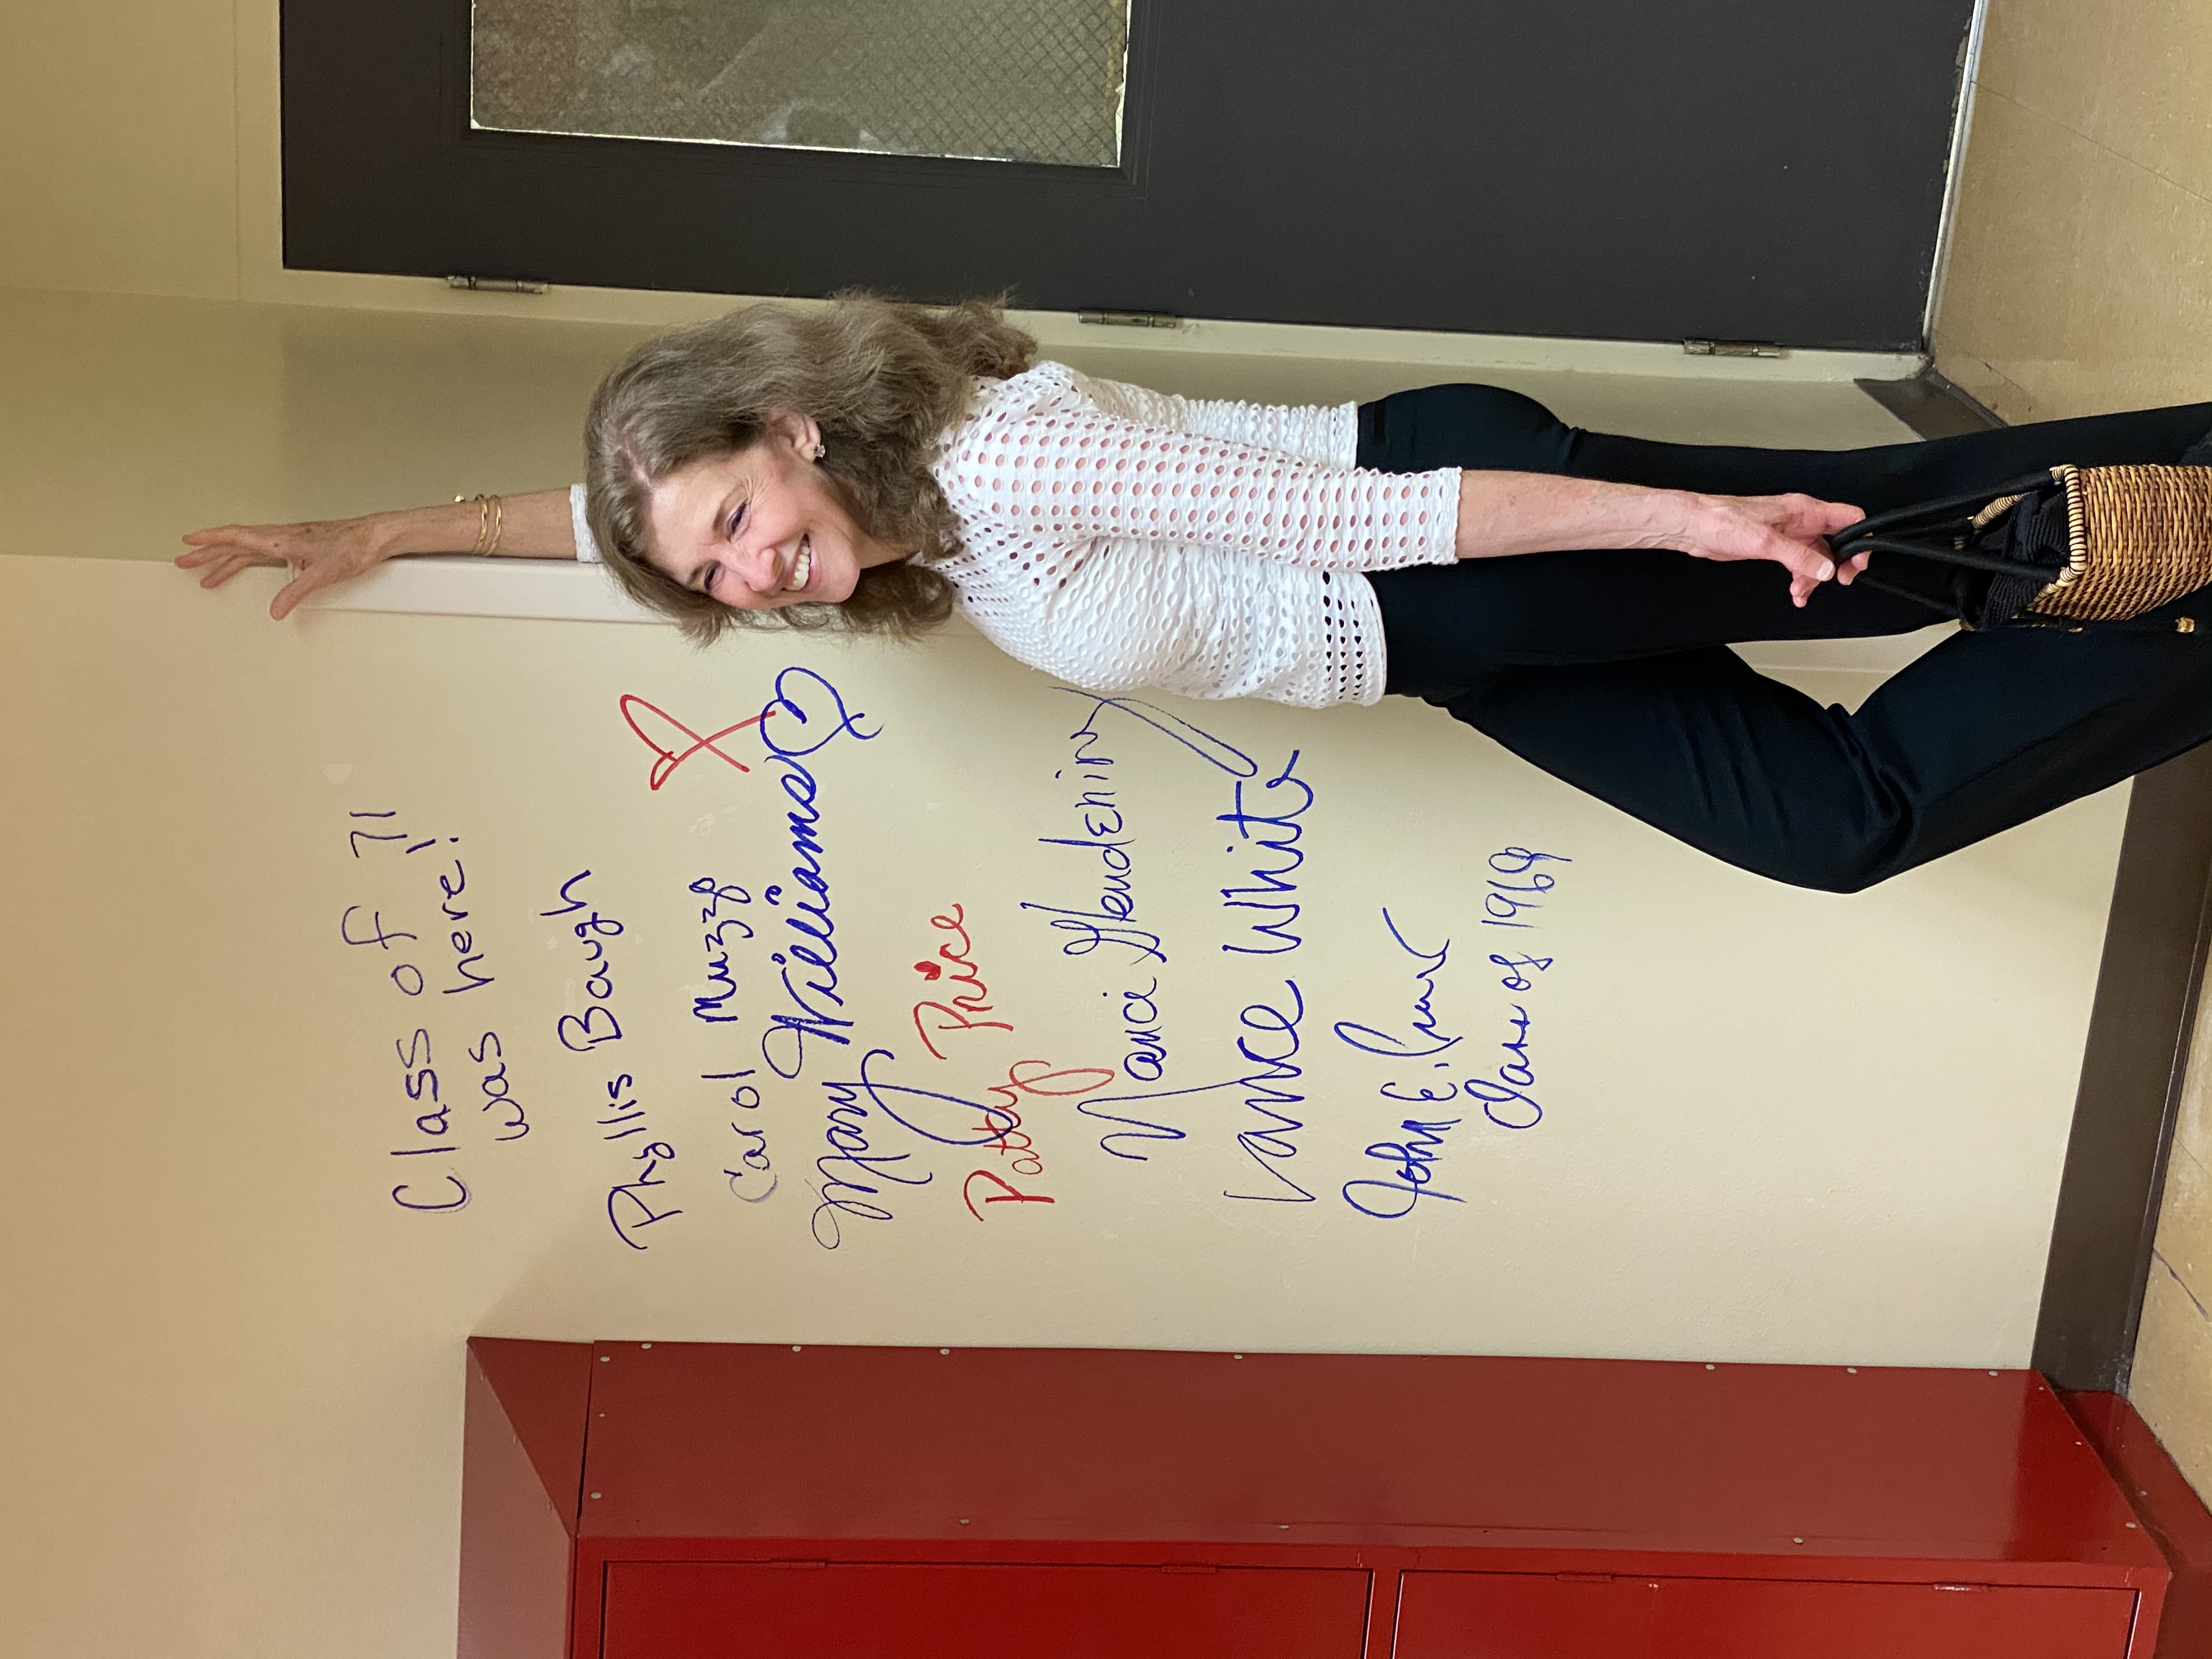 Class of 71
was here!
Phyllis Baugh
Carol Muzzo
Mary Williams
Patty Price
Nanci
Vance White
John E.
Class of 1969